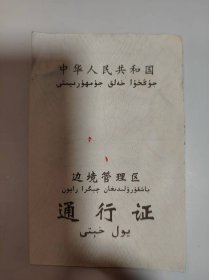 中华人民共和国
جۇڭخۇا خەلق جۇمھۇرىيىتى
边境管理区
باشقۇرۇلىدىغان چېگرا رايون
通行证
يول خېتى